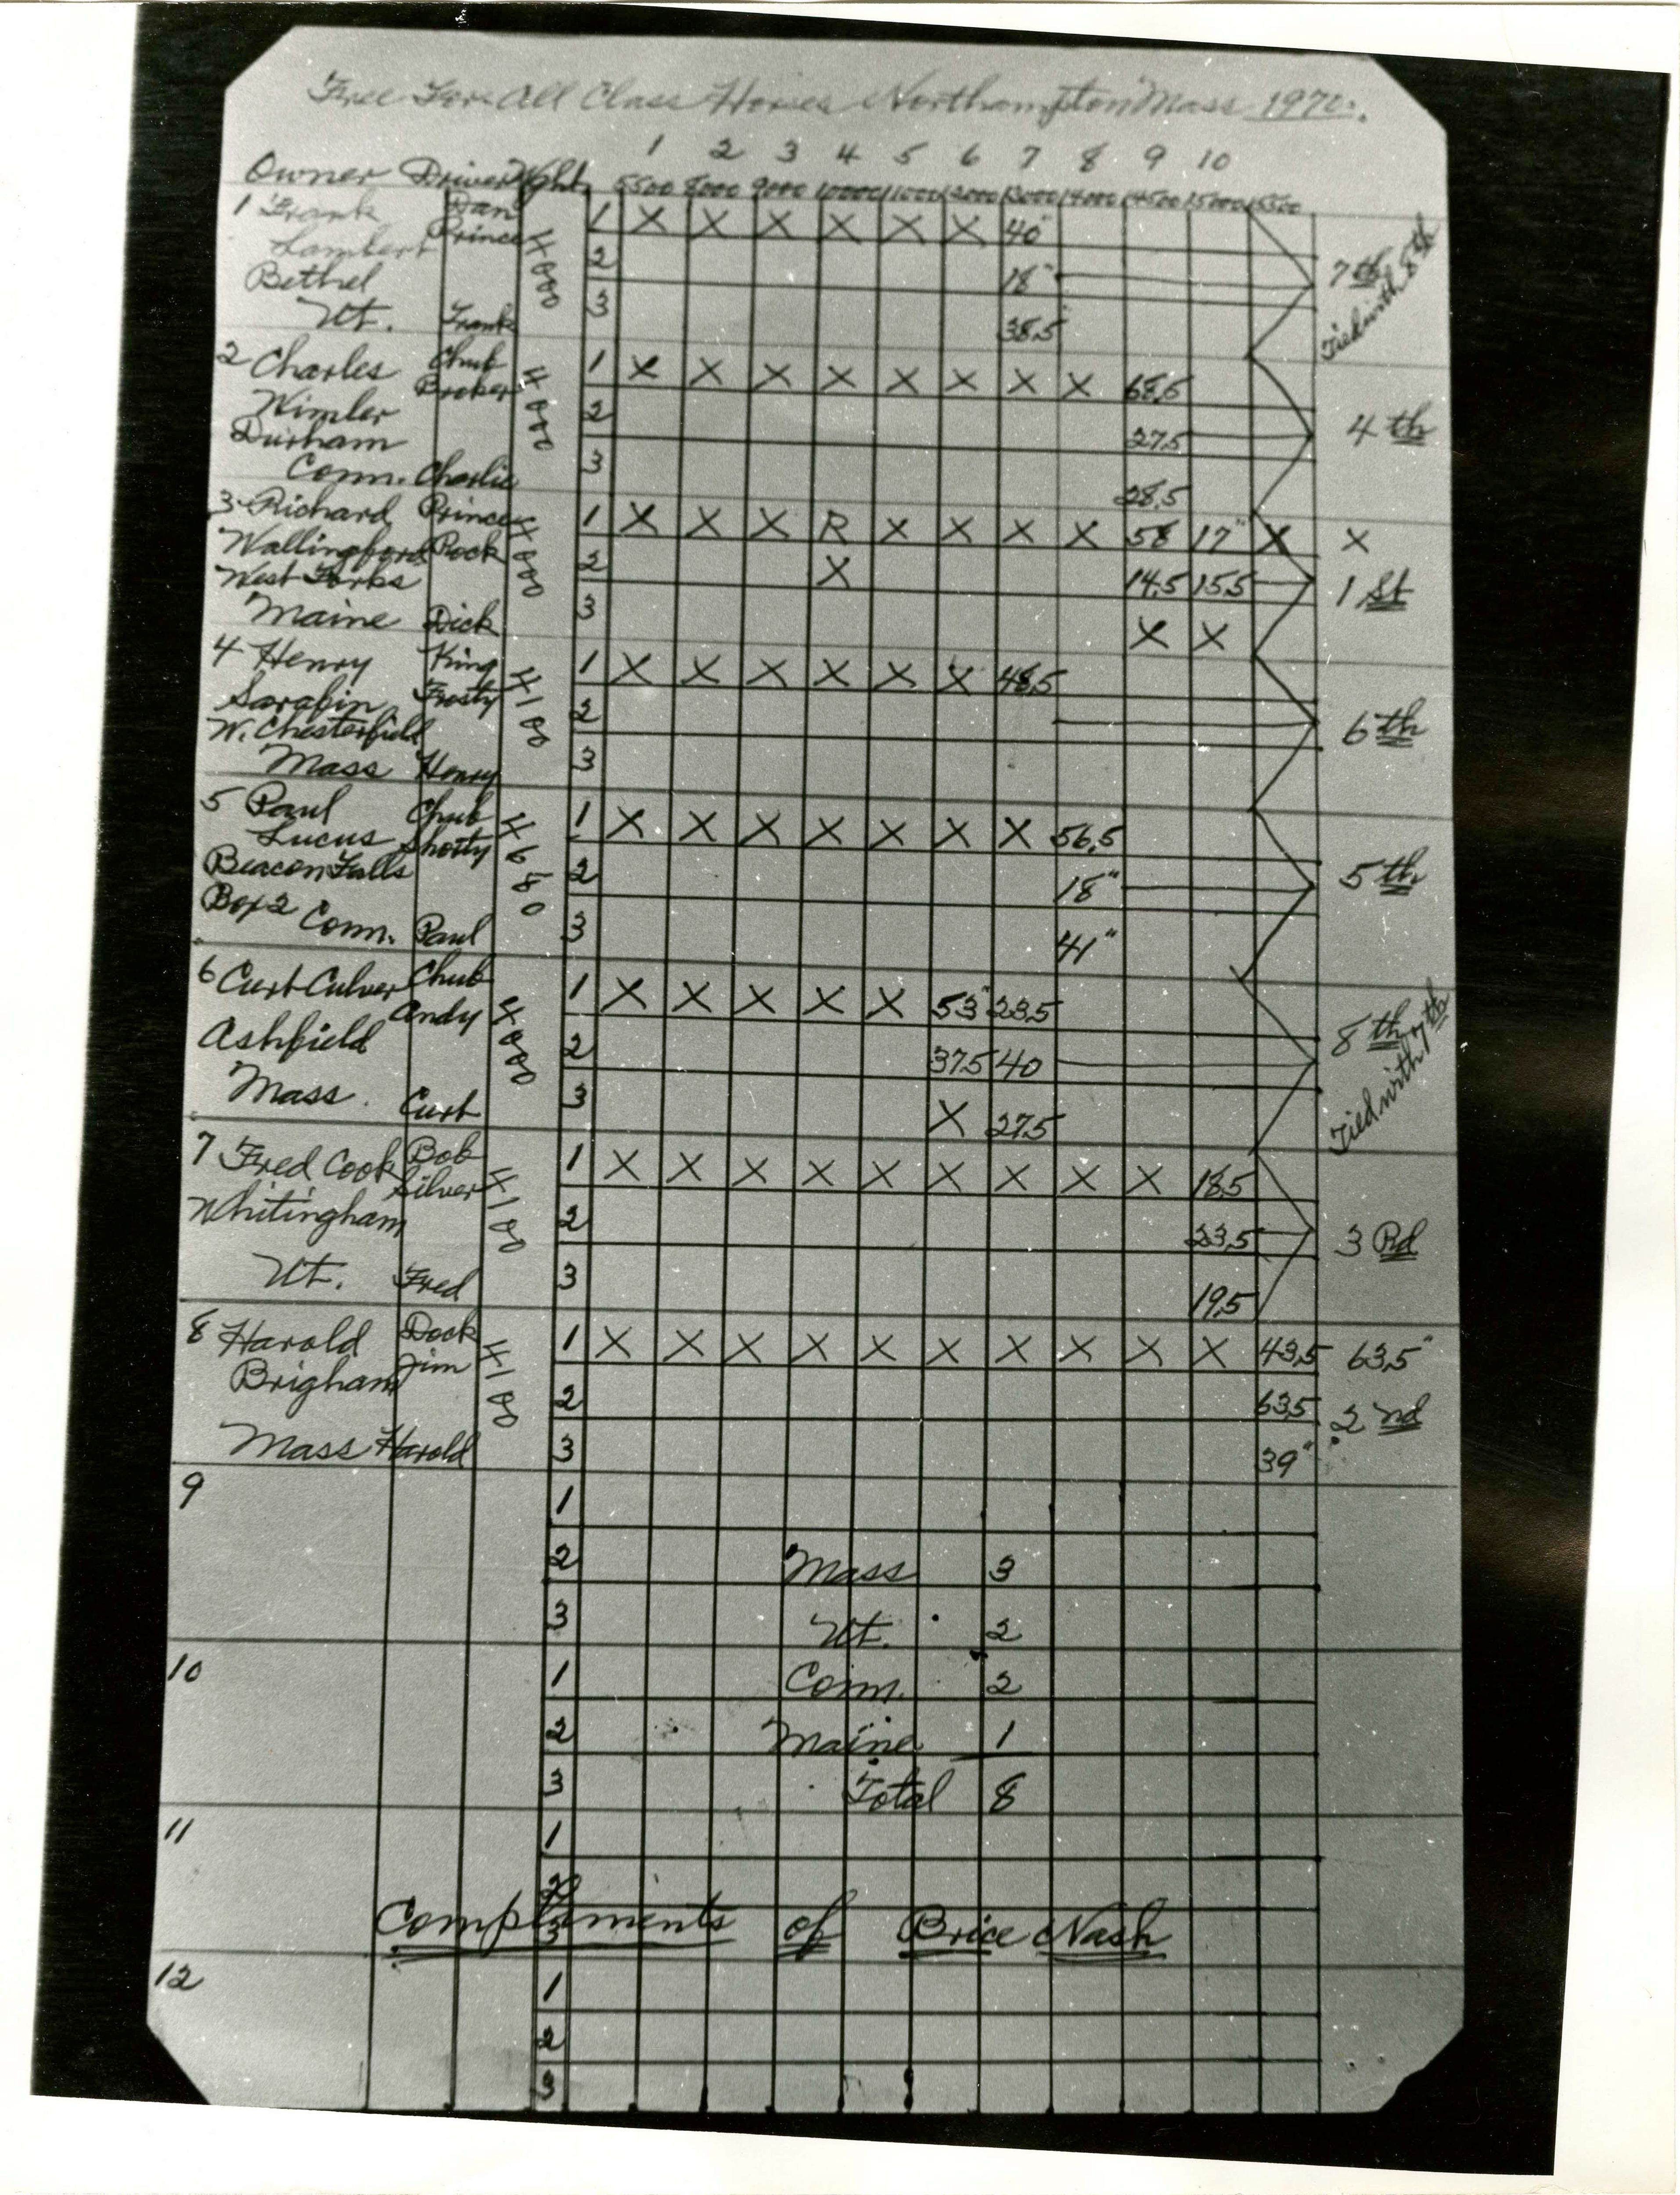 Free For All Class Horses Northampton Mass
1 2 3 4 5 6 7 8 9 10
Owner Driver Wght. 5500 8000 9000 10000 11000 12000 13000 14000 14500 15000 15500
1 Frank Dan 1 X X X X X X 40"
Lambert Prince 2 18" 7th
Bethel 3 38.5 Tied with 8th
Vt. Frank
2 Charles Chub 1 X X X X X X X X 68.5
Wimler Broker 2 27.5 4th
Durham 3 28.5
Conn. Charlie
3 Richard Prince 1 X X X R X X X X 58 17" X X
Wallingford Rock 2 X 14.5 15.5 1 St
West Forks 3 X X
Maine Dick
4 Henry King 4100 1 X X X X X X 48.5
Sarafin Frosty 2 6th
W. Chesterfield 3
Mass Henry
5 Paul Chub 4680 1 X X X X X X X 56.5
Lucus Shorty 2 18" 5th
Beacon Falls 3 41"
Box 2 Conn. Paul
6 Curt Culver Chub 4000 1 X X X X X 53" 23.5
Andy 2 37.5 40 8th
Ashfield 3 X 27.5 Tied with 7th
Mass. Curt
7 Fred Cook Bob 4100 1 X X X X X X X X X 18.5
Silver 2 23.5 3 Rd
Whitingham 3 19.5
Vt. Fred
8 Harold Dock 4100 1 X X X X X X X X X X 43.5 63.5"
Brigham Jim 2 63.5 2nd
Mass Harold 3 39"
9 1
2 Mass 3
3 Vt. 2
10 1 Conn. 2
2 Maine 1
3 Total 8
11 1
2
3
Compliments of Brice Nash
12 1
2
3